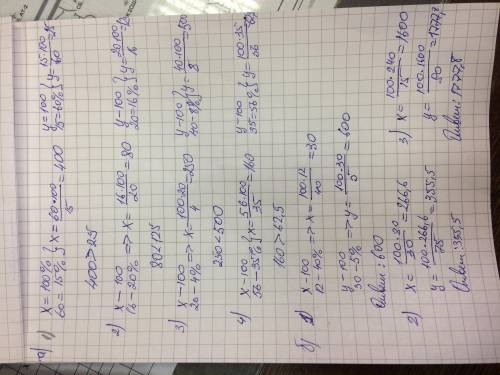 а) 1) x = 100% } x = 60*100/15 = 400 y = 100 } y = 15·100/60 = 25
60 = 15% 15 = 60%
400 > 25
2) x - 100 y - 100
16 - 20% => x = 16·100/20 = 80 20 = 16% } y = 20·100/16
80 < 125
3) x - 100 y - 100
20 - 4% => x = 100·20/4 = 250 40 = 8% } y = 40·100/8 = 500
250 < 500
4) x - 100 y - 100
56 - 35% } x = 56·100/35 = 160 35 = 56% } y = 100·35/56
160 > 62,5
б) x - 100
12 - 40% => x = 100·12/40 = 30
y - 100
30 - 5% => y = 100·30/5 = 600
Ответ: 600
2) x = 266,6
y = 100·266,6/75 = 355,5
Ответ: 355,5
3) x = 100·240/15 = 1600
y = 100·1600/90 = 1777,8
Ответ: 1777,8